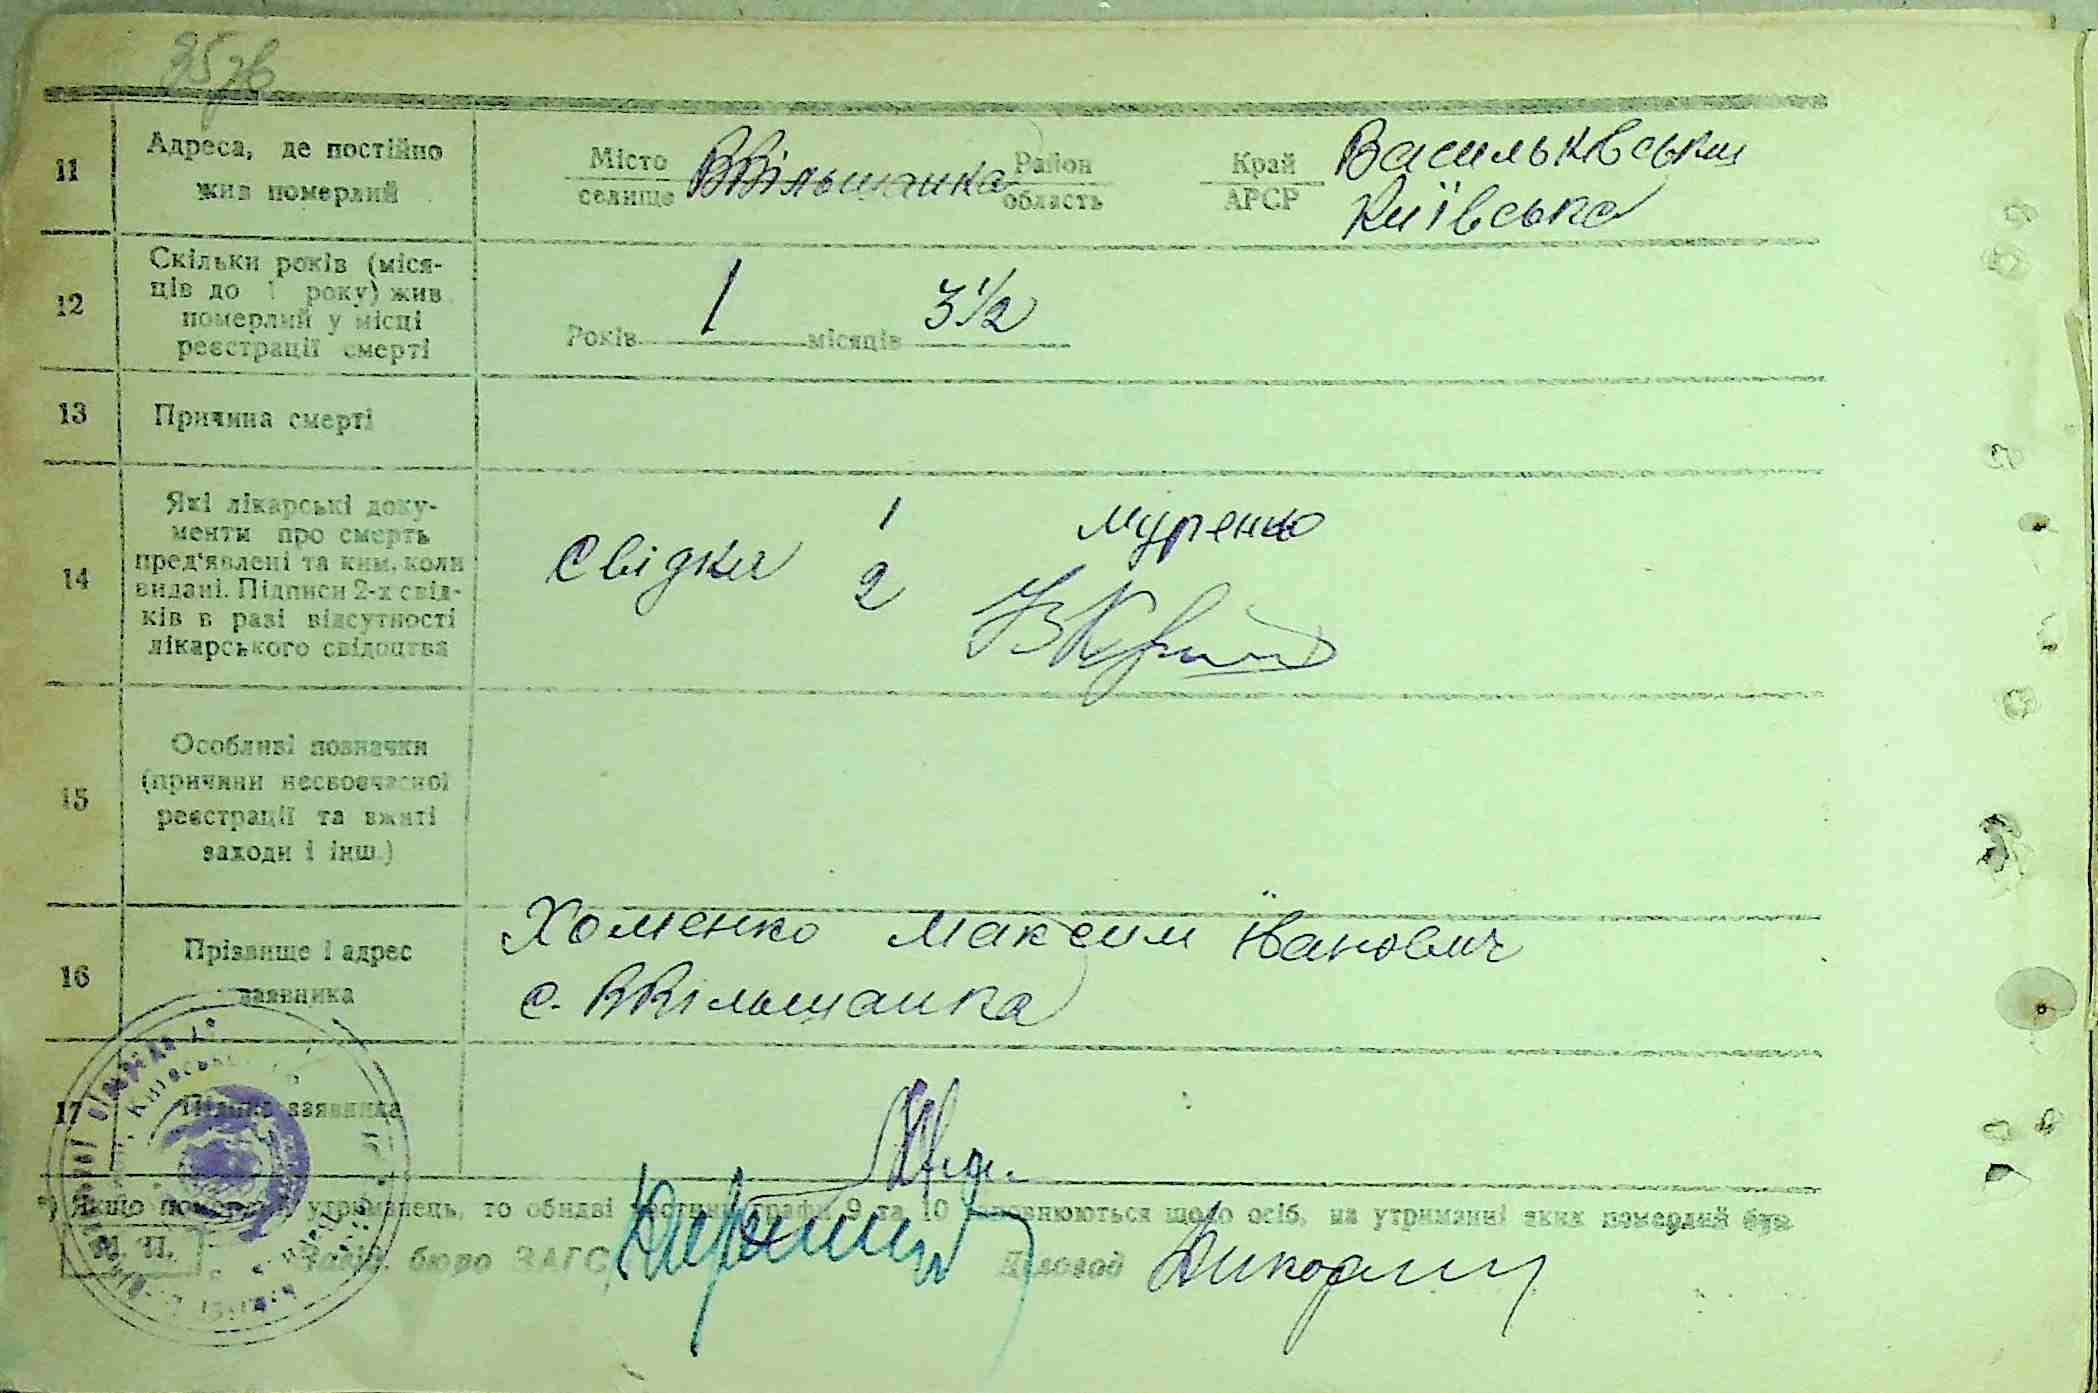 35зв
11 Адреса, де постійно жив померлий
Місто селище ВВільшанка Район область Край АРСР Васильківський Київська
12 Скільки років (місяців до 1 року) жив померлий у місці реєстрації смерті
Років 1 місяців 3 1/2
13 Причина смерті
14 Які лікарські доку-
менти про смерть
пред'явлені та ким, коли
видані. Підписи 2-х свід-
ків в разі відсутності
лікарського свідоцтва
Свідки 1 Муренко
2
15 Особливі позначки
(причини несвоєчасної
реєстрації та вжиті
заходи і інш.)
16 Прізвище і адрес
заявника
Хоменко Максим Іванович
с. ВВільшанка
17 Підпис заявника
*) Якщо померлий утриманець, то обидві частини графи 9 та 10 заповнюються щодо осіб, на утриманні яких померлий був
М. П. Завід. бюро ЗАГС Діловод